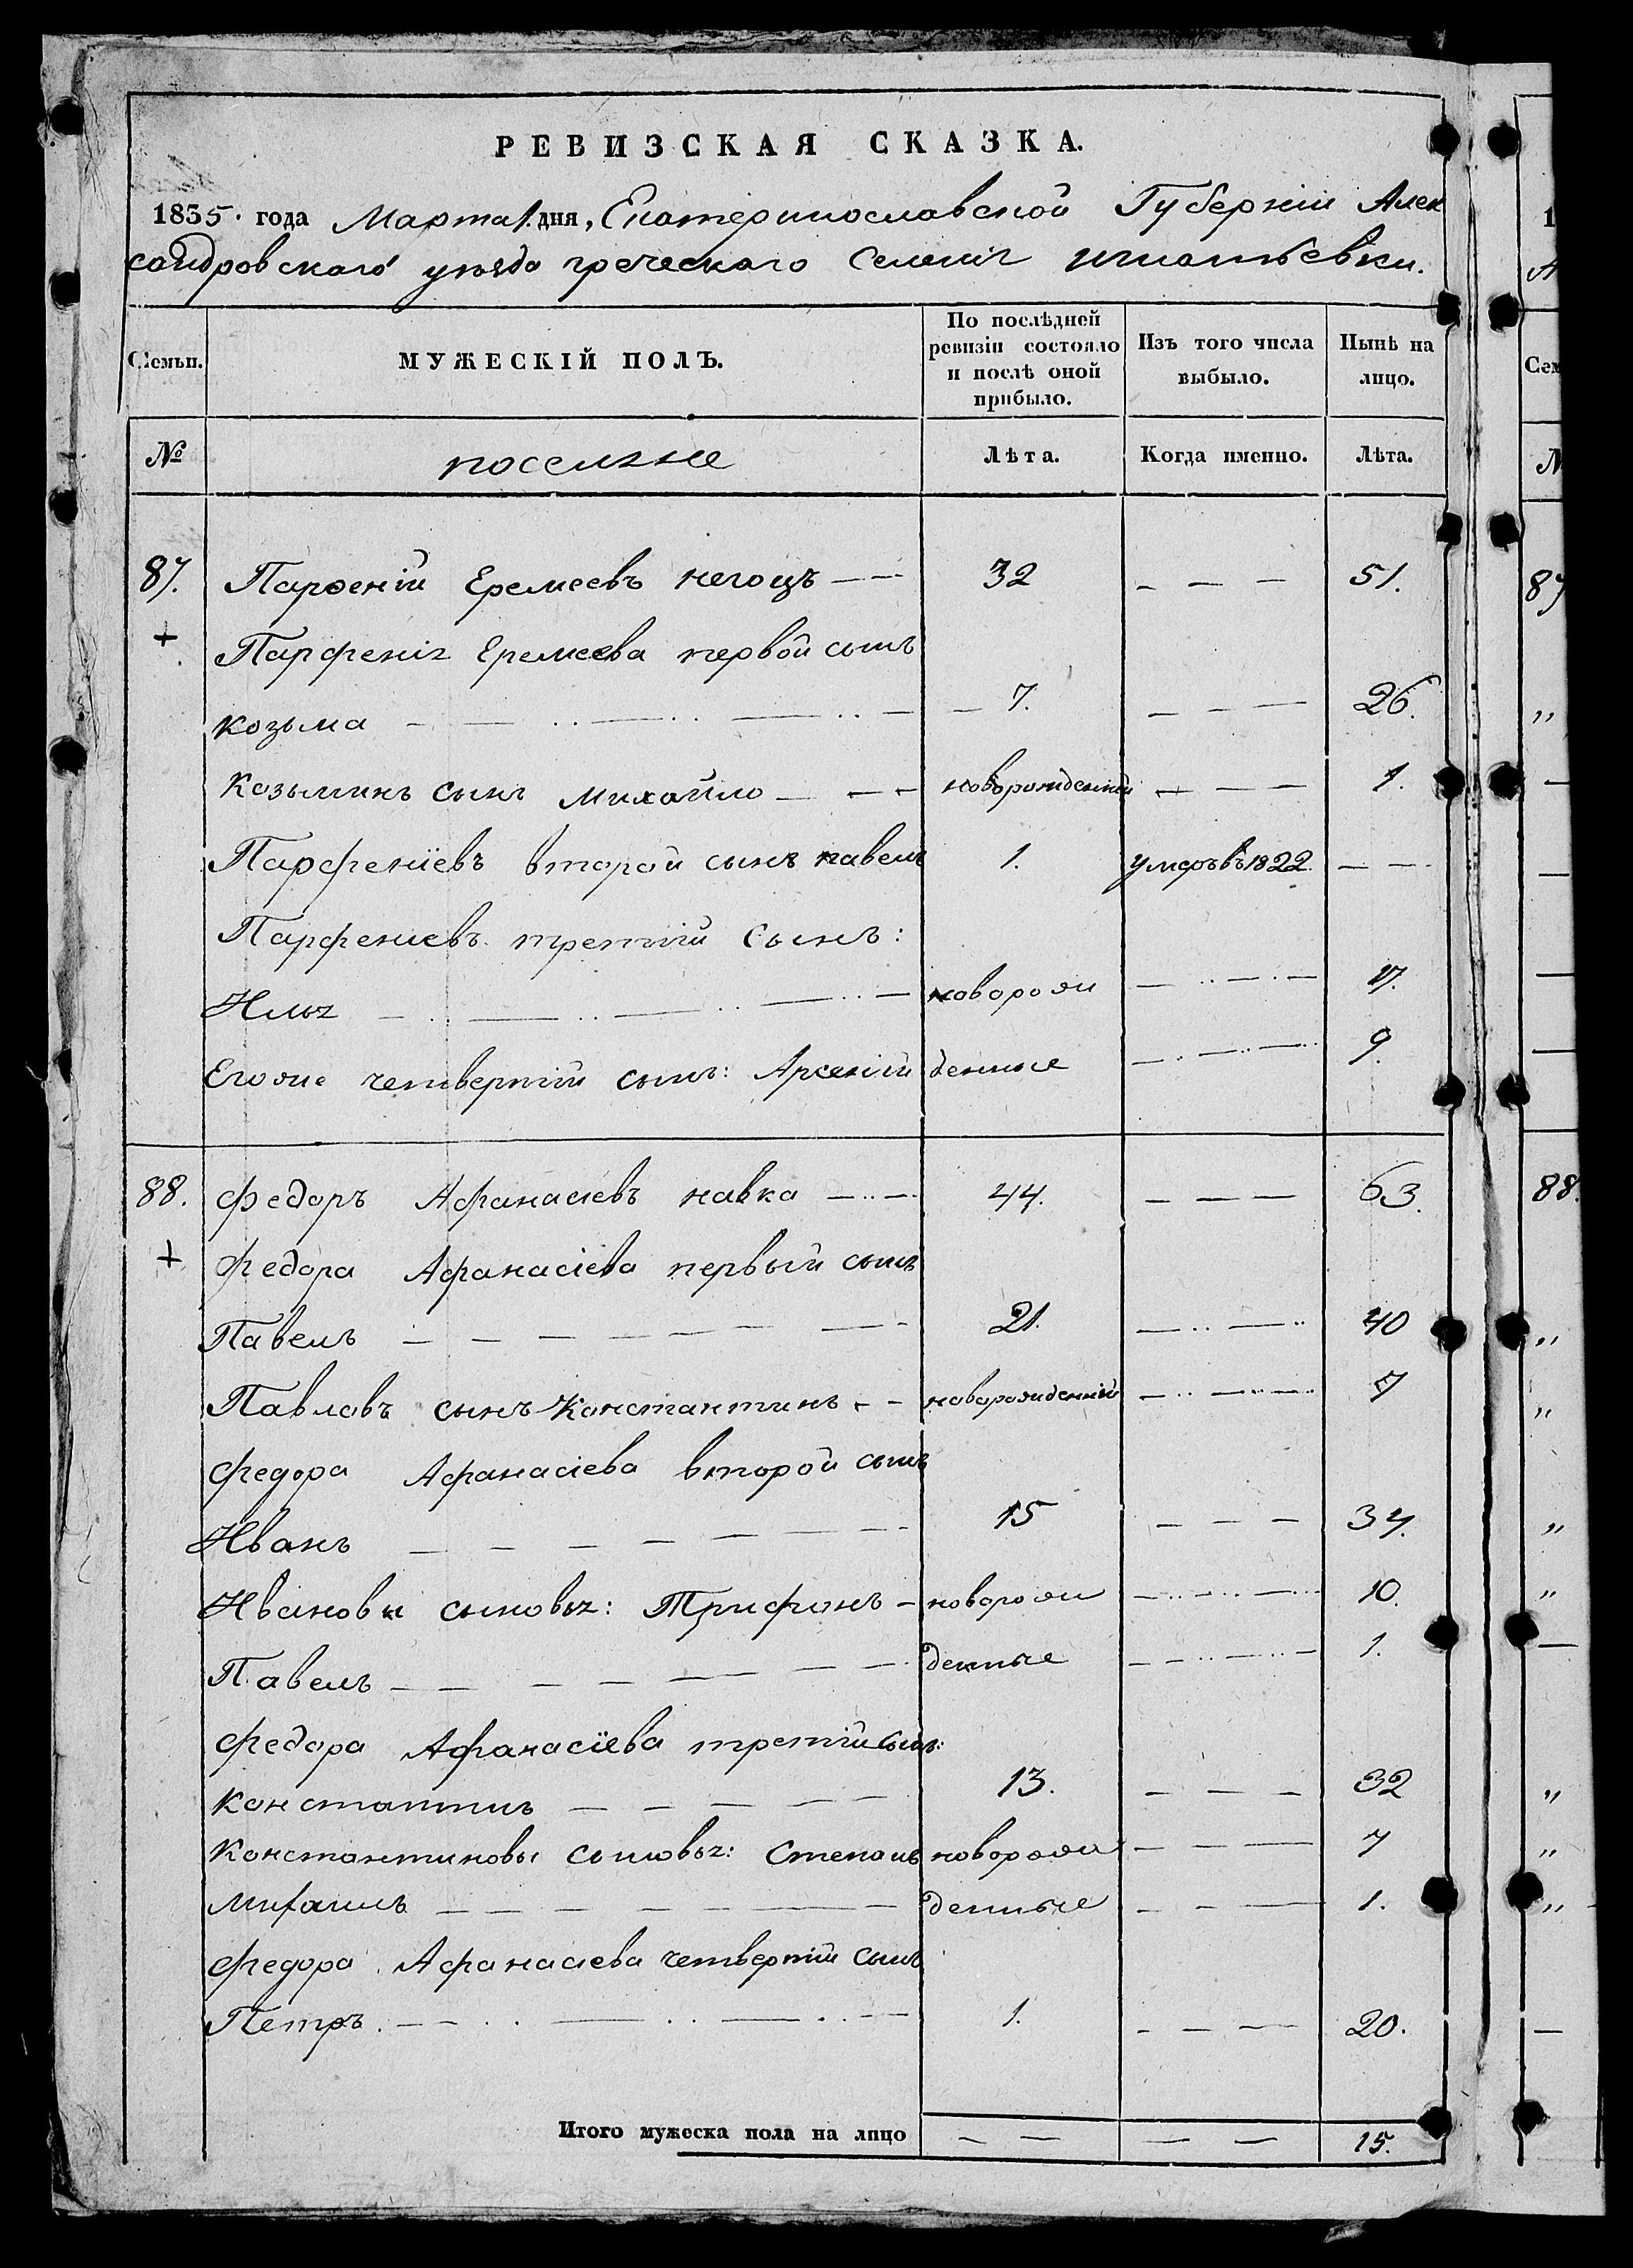 РЕВИЗСКАЯ СКАЗКА.
1835. года Марта 1. дня, Екатеринославской Губернiи Алек
сандровскаго уѣзда греческаго Селенiя игнатьевки.
Семьи. МУЖЕСКІЙ ПОЛЪ. По послѣдней ревизіи состояло и послѣ оной прибыло. Изъ того числа выбыло. Нынѣ на лицо.
№ поселяне Лѣта. Когда именно. Лѣта.
87. Парѳенiй Еремеевъ негоцъ — — 32 — — — 51.
+ Парфенiя Еремеева первой сынъ
козьма — — — 7. — — — 26.
Козьминъ сынъ Михайло — — — новорожденный — — — 1.
Парфенiевъ второй сынъ павелъ 1. умеръ въ 1822. — —
Парфенiевъ третiй сынъ:
Илья — — — новорож — — — 17.
Егоже четвертiй сынъ: Арсенiй денные — — — 9.
88. Федоръ Афанасiевъ навка — — 44. — — — 63.
+ Федора Афанасiева первый сынъ
Павелъ — — — 21. — — — 40
Павловъ сынъ Константинъ — — новорожденнiй — — — 7
Федора Афанасiева второй сынъ
Иванъ — — — 15 — — — 34.
Ивановы сыновья: Трифонъ — новорож — — — 10.
Павелъ — — — денные — — — 1.
Федора Афанасiева третiй сынъ:
Константинъ — — — 13. — — — 32
Константиновы сыновья: Степанъ новорож — — — 7
Михаилъ — — — денные — — — 1.
Федора Афанасиева четвертiй сынъ
Петръ. — — — 1. — — — 20.
Итого мужеска пола на лицо — — — — 15.
1
А
Сем
№
87
88.